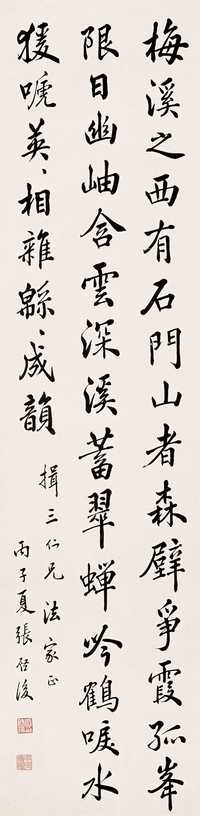 梅溪之西有石門山者森壁爭霞孤峯
限日幽岫含雲深溪蓄翠蟬吟鶴唳水
猨嗁英、相雜緜、成韻
揖三仁兄法家正
丙子夏張啓後